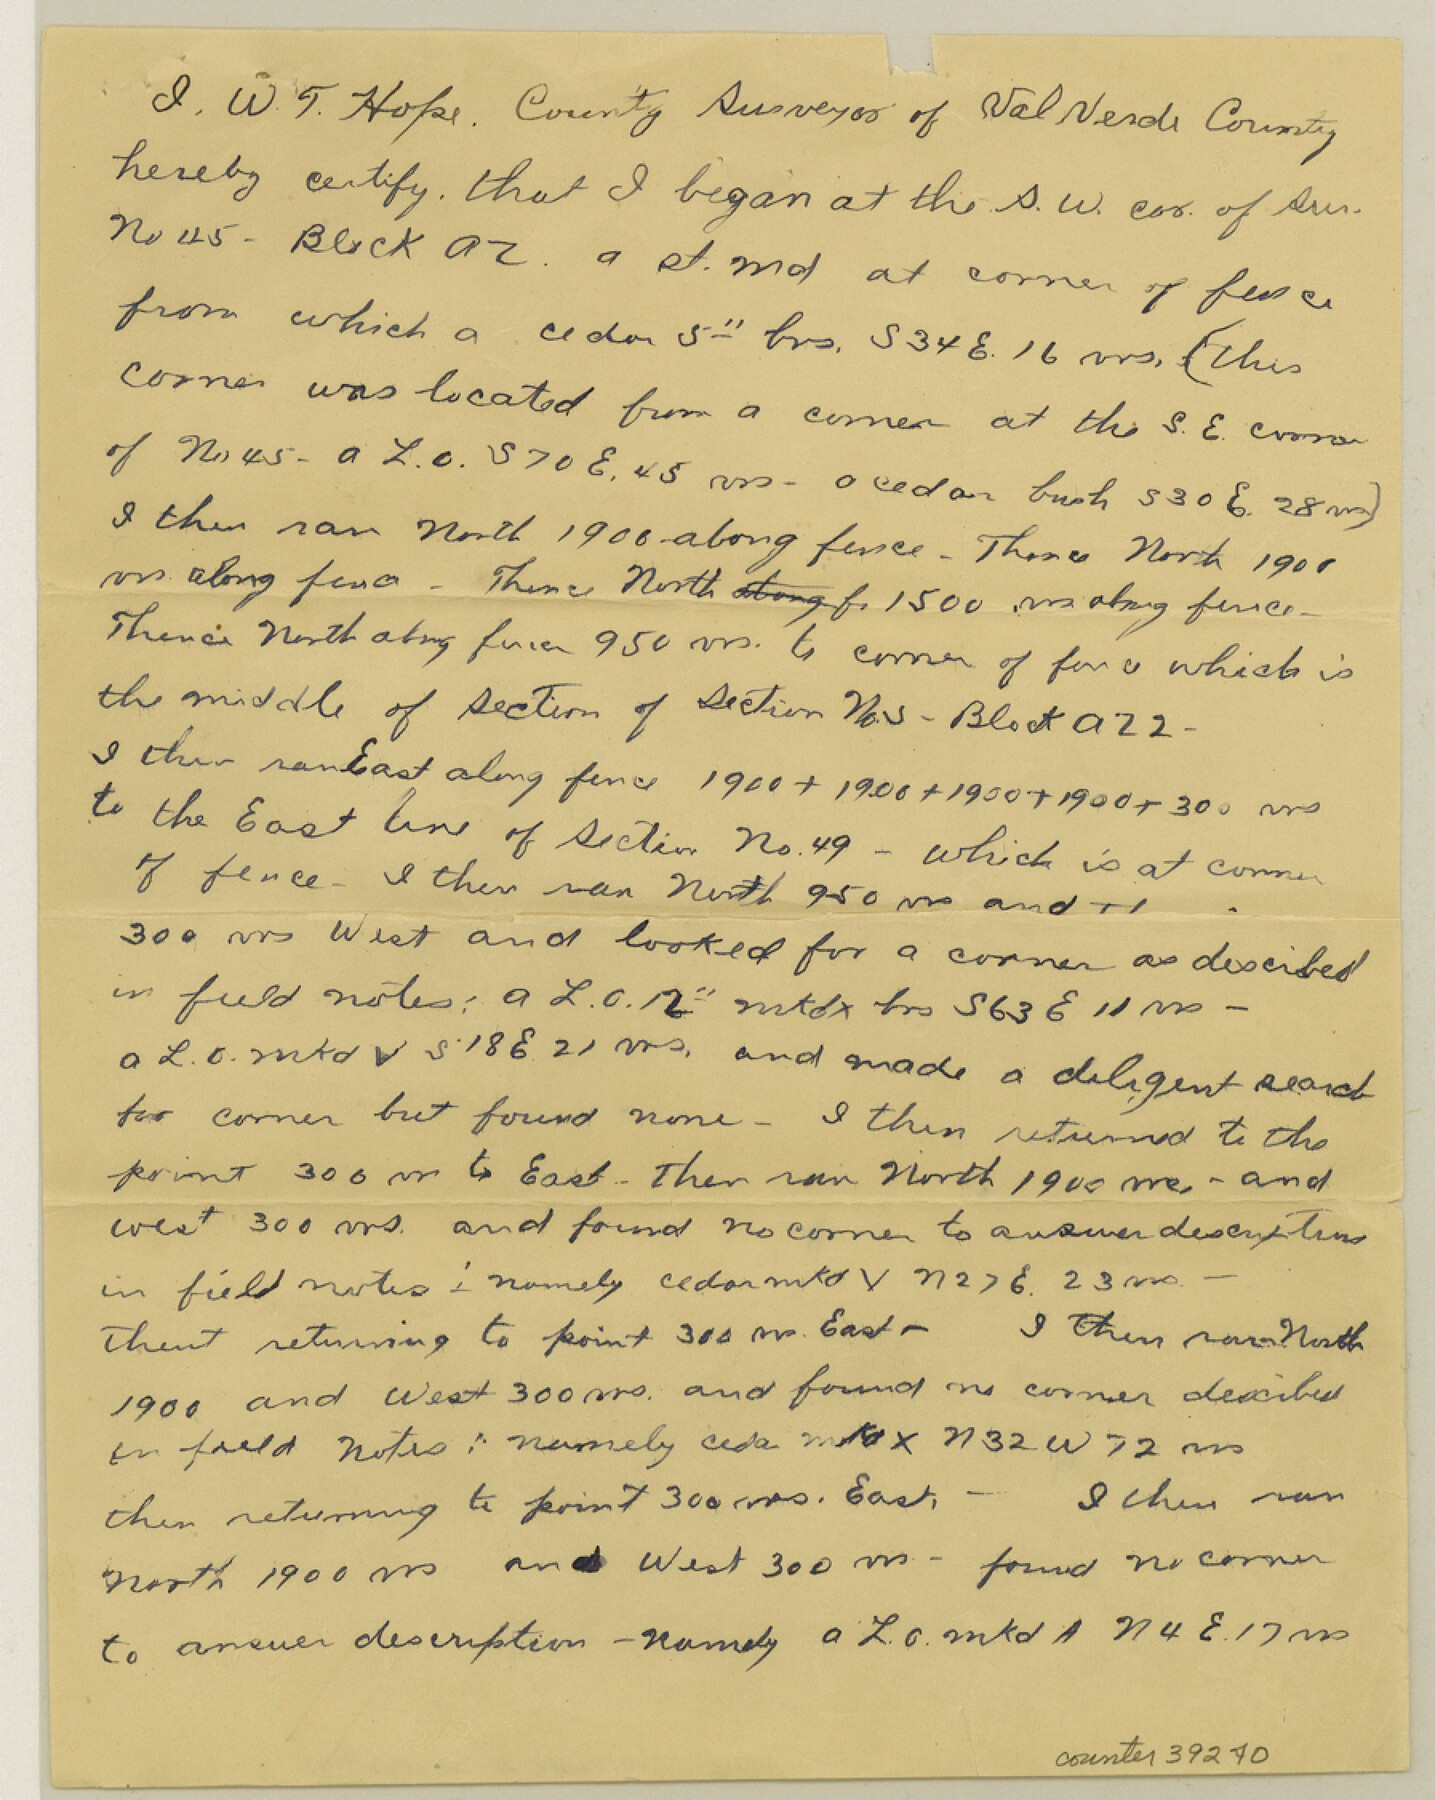 I, W. T. Hope, County Surveyor of Val Verde County
hereby certify, that I began at the S. W. cor. of Sur.
No 45 - Block A2. a st. md at corner of fence
from which a cedar 5" brs. S 34 E. 16 vrs. (this
corner was located from a corner at the S. E. corner
of No 45 - a L.O. S 70 E. 45 vrs - a cedar bush S 30 E. 28 vrs)
I then ran North 1900 along fence - Thence North 1900
vrs along fence - Thence North along f. 1500 vrs along fence -
Thence North along fence 950 vrs. to corner of fence which is
the middle of section of section No. 5 - Block A 2 2 -
I then ran East along fence 1900 + 1900 + 1900 + 1900 + 300 vrs
to the East line of Section No. 49 - which is at corner
of fence - I then ran North 950 vrs and
300 vrs West and looked for a corner as described
in field notes: a L.O. 12" mkd x brs S 63 E 11 vrs -
a L.O. mkd V S 18 E 21 vrs. and made a diligent search
for corner but found none - I then returned to the
point 300 vrs to East - then ran North 1900 vrs. - and
west 300 vrs. and found no corner to answer description
in field notes : namely cedar mkd V N 27 E. 23 vrs -
thent returning to point 300 vrs. East - I then ran North
1900 and West 300 vrs. and found no corner described
in field notes : namely ceda mkd X N 32 W 72 vrs
then returning to point 300 vrs. East, - I then ran
North 1900 vrs and West 300 vrs - found no corner
to answer description - namely a L.O. mkd A N 4 E. 17 vrs
counter 39270